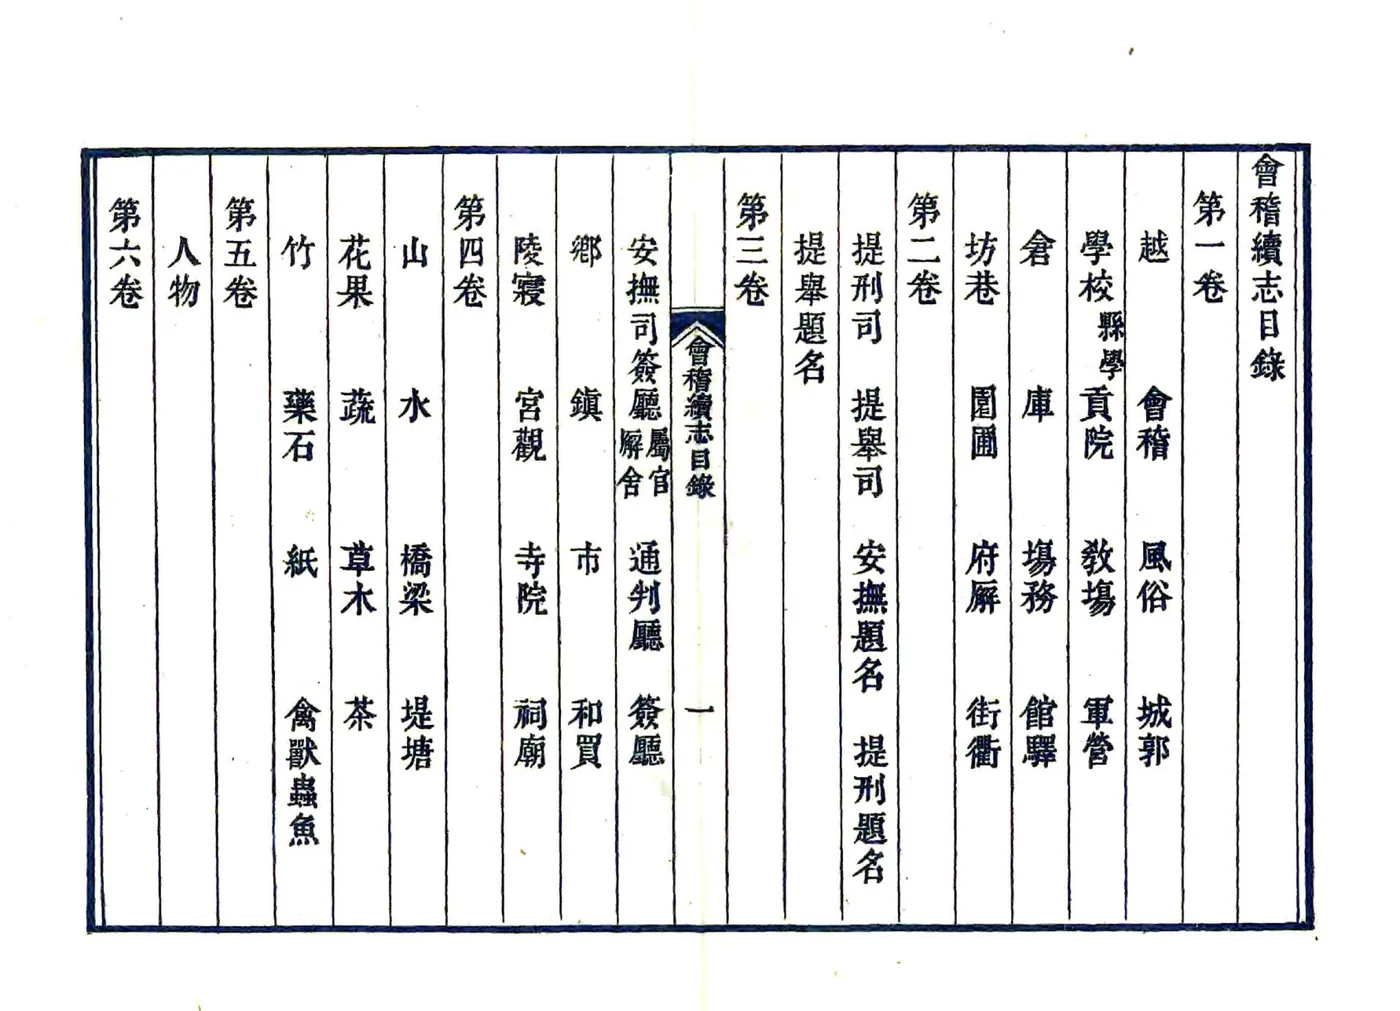 會稽續志目錄
第一卷
越 會稽 風俗 城郭
學校縣學 貢院 教場 軍營
倉 庫 場務 館驛
坊巷 園圃 府廨 街衢
第二卷
提刑司 提舉司 安撫題名 提刑題名
提舉題名
第三卷
會稽續志目錄 一
安撫司簽廳屬官廨舍 通判廳 簽廳
鄉 鎮 市 和買
陵寢 宮觀 寺院 祠廟
第四卷
山 水 橋梁 堤塘
花果 蔬 草木 茶
竹 藥石 紙 禽獸蟲魚
第五卷
人物
第六卷